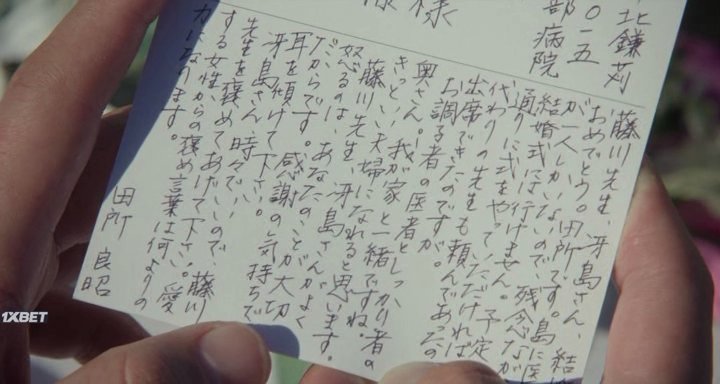 北鎌苅
〇一五
部病院
様
様
藤川先生、冴島さん、結
おめでとう。田所です。島に医
が一人しかいないので、残念なが
結婚式には行けません。予定
通りに式をやっていただければ
代わりの先生も頼んであったの
出席できたのですが。
お調子者の医者としっかり者の
奥さん。我が家と一緒ですね。
きっと、いい夫婦になれると思います。
藤川先生、冴島さんがよく
怒るのは、あなたのことが大切
だからです。感謝の気持ちで
耳を傾けて下さい。
冴島さん、時々でいいので、藤川
先生を褒めてあげて下さい。愛
する女性からの褒め言葉は何よりの
力になります。
田所 良昭
1XBET